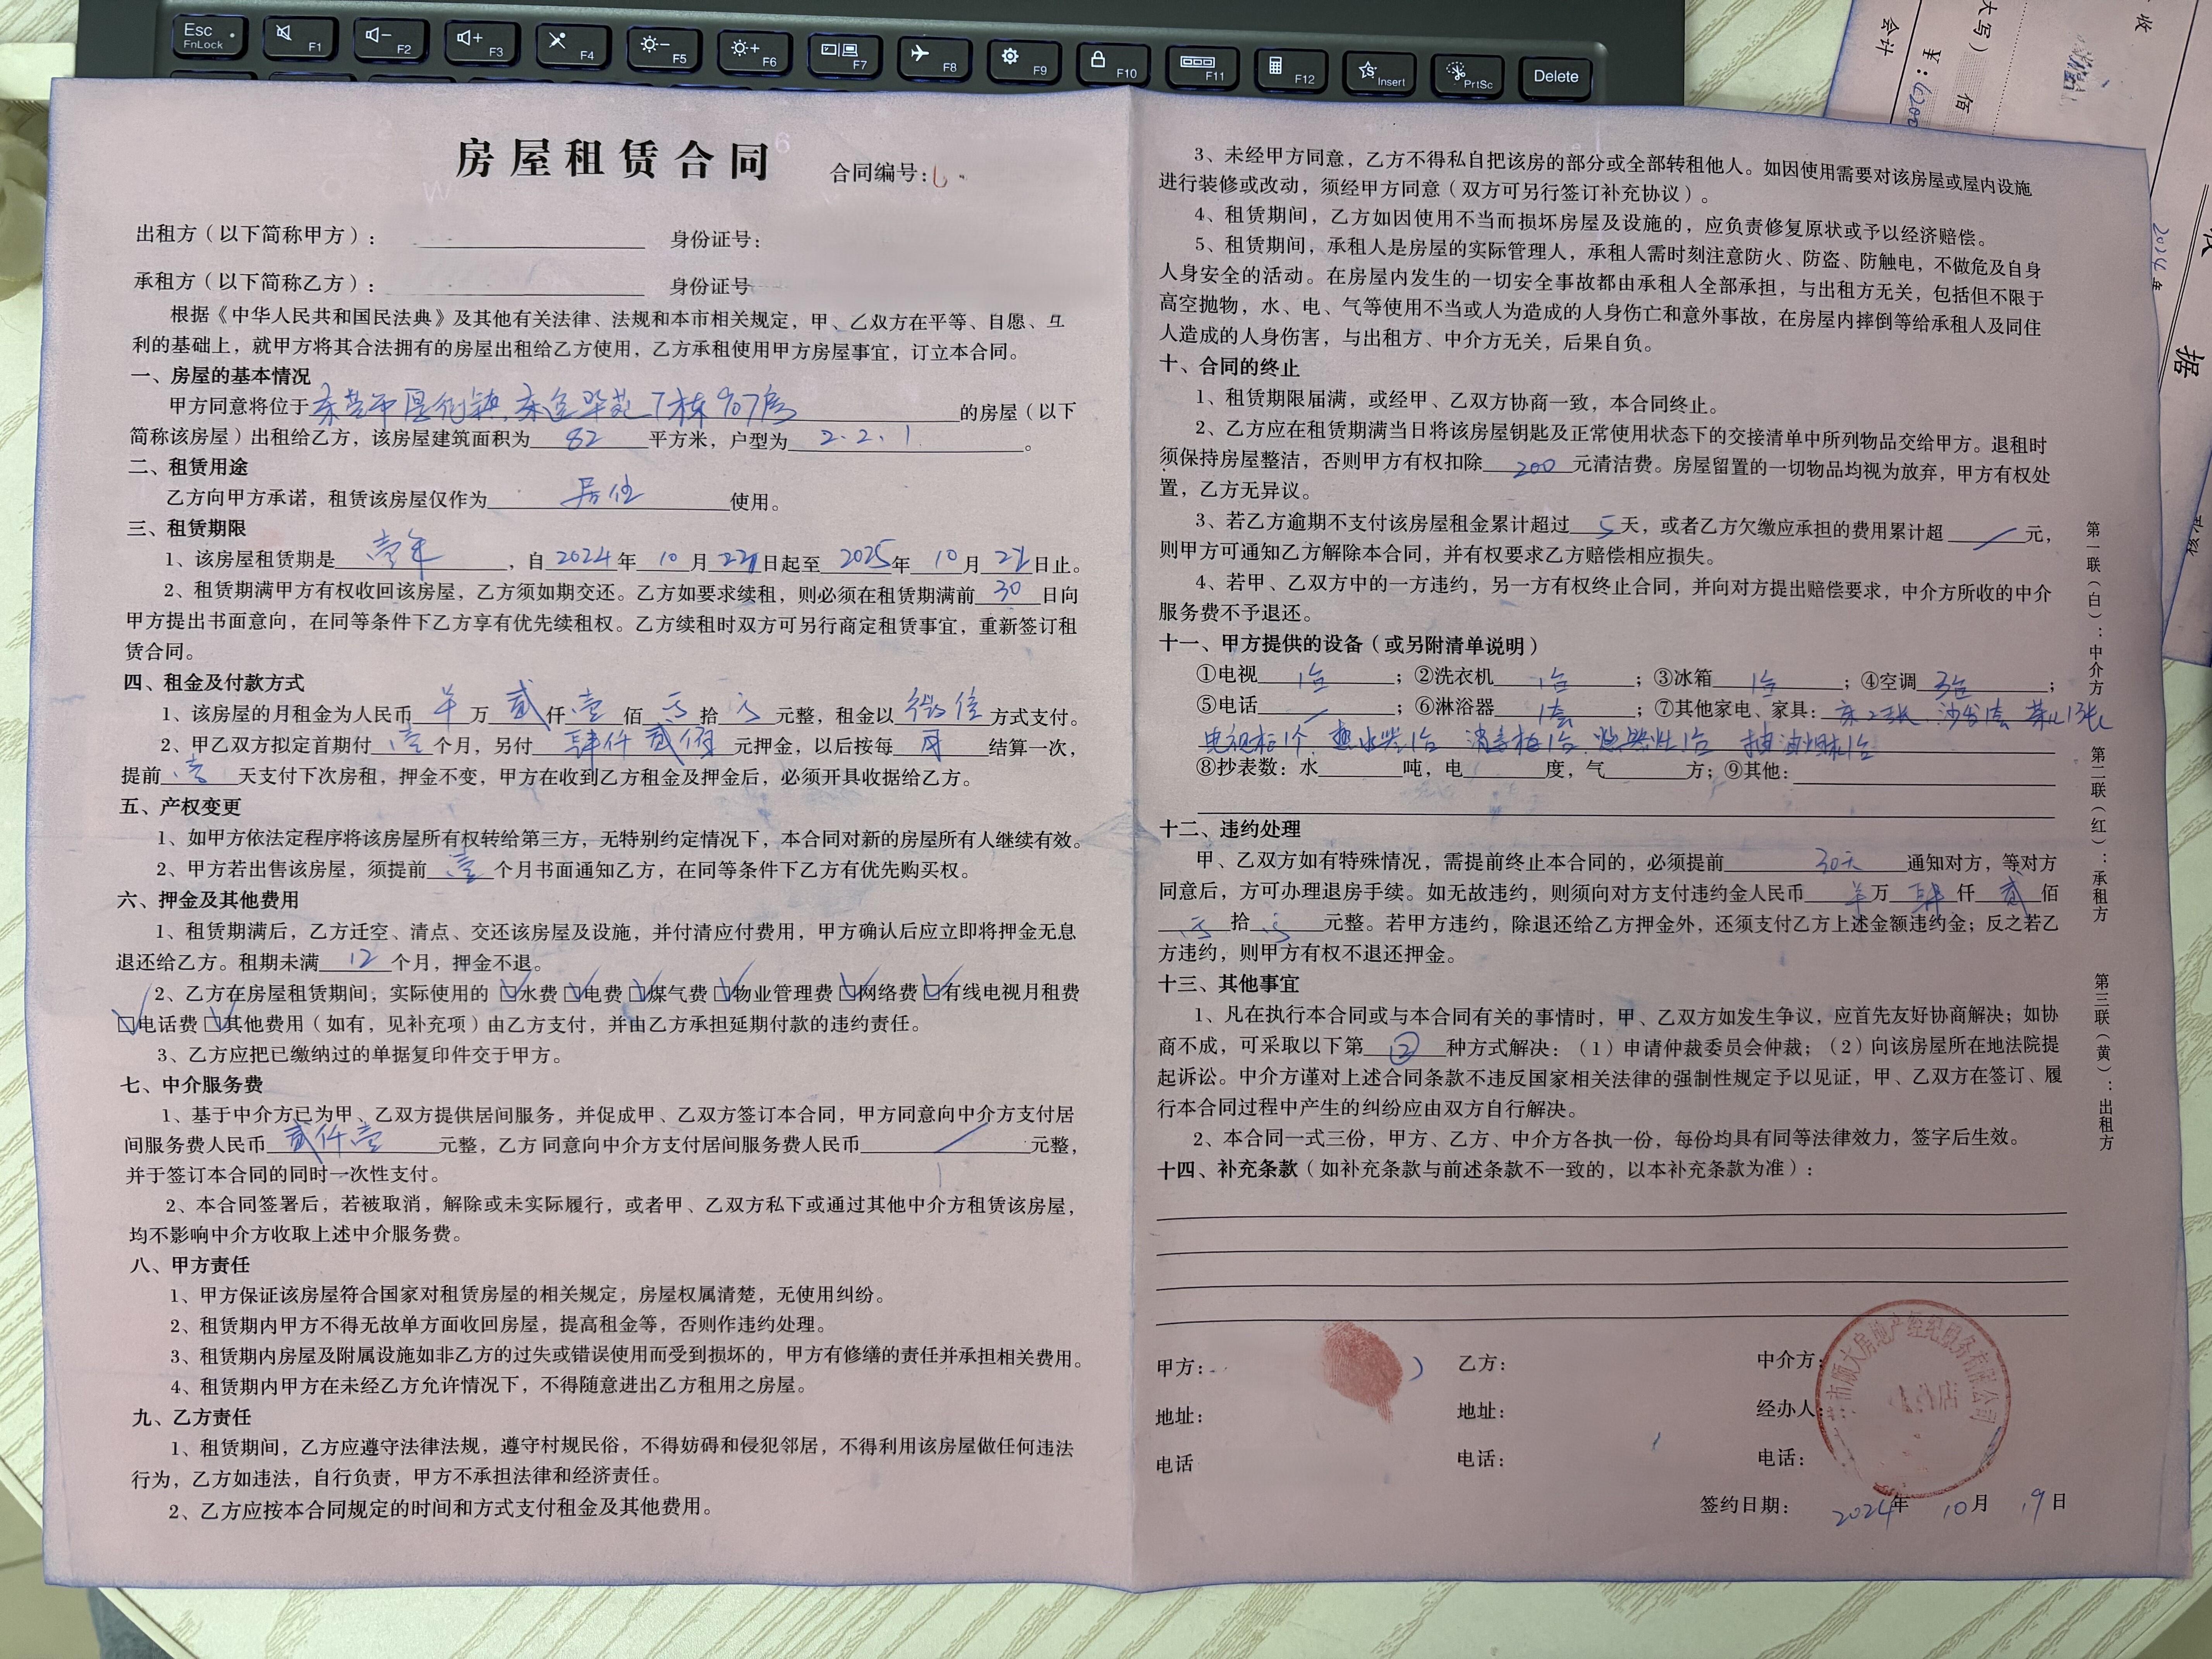 Esc
FnLock
F1
F2
F3
F4
F5
F6
F7
F8
F9
F10
F11
F12
Insert
PrtSc
Delete
房屋租赁合同
合同编号:
出租方（以下简称甲方）:
身份证号:
承租方（以下简称乙方）:
身份证号
根据《中华人民共和国民法典》及其他有关法律、法规和本市相关规定，甲、乙双方在平等、自愿、互
利的基础上，就甲方将其合法拥有的房屋出租给乙方使用，乙方承租使用甲方房屋事宜，订立本合同。
一、房屋的基本情况
甲方同意将位于东莞市厚街镇 7栋907房的房屋（以下
简称该房屋）出租给乙方，该房屋建筑面积为 82 平方米，户型为 2.2.1。
二、租赁用途
乙方向甲方承诺，租赁该房屋仅作为 居住 使用。
三、租赁期限
1、该房屋租赁期是 壹年，自2024年10月 日起至2025年10月 日止。
2、租赁期满甲方有权收回该房屋，乙方须如期交还。乙方如要求续租，则必须在租赁期满前 30 日向
甲方提出书面意向，在同等条件下乙方享有优先续租权。乙方续租时双方可另行商定租赁事宜，重新签订租
赁合同。
四、租金及付款方式
1、该房屋的月租金为人民币 万 贰 仟 壹 佰 拾 元整，租金以 微信 方式支付。
2、甲乙双方拟定首期付 壹 个月，另付 肆仟贰佰 元押金，以后按每 月 结算一次，
提前 壹 天支付下次房租，押金不变，甲方在收到乙方租金及押金后，必须开具收据给乙方。
五、产权变更
1、如甲方依法定程序将该房屋所有权转给第三方，无特别约定情况下，本合同对新的房屋所有人继续有效。
2、甲方若出售该房屋，须提前 壹 个月书面通知乙方，在同等条件下乙方有优先购买权。
六、押金及其他费用
1、租赁期满后，乙方迁空、清点、交还该房屋及设施，并付清应付费用，甲方确认后应立即将押金无息
退还给乙方。租期未满 12 个月，押金不退。
2、乙方在房屋租赁期间，实际使用的 ☑水费 ☑电费 ☑煤气费 ☑物业管理费 ☑网络费 ☑有线电视月租费
☑电话费 ☑其他费用（如有，见补充项）由乙方支付，并由乙方承担延期付款的违约责任。
3、乙方应把已缴纳过的单据复印件交于甲方。
七、中介服务费
1、基于中介方已为甲、乙双方提供居间服务，并促成甲、乙双方签订本合同，甲方同意向中介方支付居
间服务费人民币 贰仟壹 元整，乙方同意向中介方支付居间服务费人民币 / 元整，
并于签订本合同的同时一次性支付。
2、本合同签署后，若被取消，解除或未实际履行，或者甲、乙双方私下或通过其他中介方租赁该房屋，
均不影响中介方收取上述中介服务费。
八、甲方责任
1、甲方保证该房屋符合国家对租赁房屋的相关规定，房屋权属清楚，无使用纠纷。
2、租赁期内甲方不得无故单方面收回房屋，提高租金等，否则作违约处理。
3、租赁期内房屋及附属设施如非乙方的过失或错误使用而受到损坏的，甲方有修缮的责任并承担相关费用。
4、租赁期内甲方在未经乙方允许情况下，不得随意进出乙方租用之房屋。
九、乙方责任
1、租赁期间，乙方应遵守法律法规，遵守村规民俗，不得妨碍和侵犯邻居，不得利用该房屋做任何违法
行为，乙方如违法，自行负责，甲方不承担法律和经济责任。
2、乙方应按本合同规定的时间和方式支付租金及其他费用。
3、未经甲方同意，乙方不得私自把该房的部分或全部转租他人。如因使用需要对该房屋或屋内设施
进行装修或改动，须经甲方同意（双方可另行签订补充协议）。
4、租赁期间，乙方如因使用不当而损坏房屋及设施的，应负责修复原状或予以经济赔偿。
5、租赁期间，承租人是房屋的实际管理人，承租人需时刻注意防火、防盗、防触电，不做危及自身
人身安全的活动。在房屋内发生的一切安全事故都由承租人全部承担，与出租方无关，包括但不限于
高空抛物，水、电、气等使用不当或人为造成的人身伤亡和意外事故，在房屋内摔倒等给承租人及同住
人造成的人身伤害，与出租方、中介方无关，后果自负。
十、合同的终止
1、租赁期限届满，或经甲、乙双方协商一致，本合同终止。
2、乙方应在租赁期满当日将该房屋钥匙及正常使用状态下的交接清单中所列物品交给甲方。退租时
须保持房屋整洁，否则甲方有权扣除 200 元清洁费。房屋留置的一切物品均视为放弃，甲方有权处
置，乙方无异议。
3、若乙方逾期不支付该房屋租金累计超过 5 天，或者乙方欠缴应承担的费用累计超 / 元，
则甲方可通知乙方解除本合同，并有权要求乙方赔偿相应损失。
4、若甲、乙双方中的一方违约，另一方有权终止合同，并向对方提出赔偿要求，中介方所收的中介
服务费不予退还。
十一、甲方提供的设备（或另附清单说明）
①电视 1台；②洗衣机 1台；③冰箱 1台；④空调 3台；
⑤电话 /；⑥淋浴器 1套；⑦其他家电、家具：床2张、沙发1套
电视柜1个 热水器1台 消毒柜1台 燃气灶1台 抽油烟机1台
⑧抄表数：水 吨，电 度，气 方；⑨其他:
十二、违约处理
甲、乙双方如有特殊情况，需提前终止本合同的，必须提前 30天 通知对方，等对方
同意后，方可办理退房手续。如无故违约，则须向对方支付违约金人民币 万 肆 仟 贰 佰
拾 元整。若甲方违约，除退还给乙方押金外，还须支付乙方上述金额违约金；反之若乙
方违约，则甲方有权不退还押金。
十三、其他事宜
1、凡在执行本合同或与本合同有关的事情时，甲、乙双方如发生争议，应首先友好协商解决；如协
商不成，可采取以下第 ② 种方式解决：（1）申请仲裁委员会仲裁；（2）向该房屋所在地法院提
起诉讼。中介方谨对上述合同条款不违反国家相关法律的强制性规定予以见证，甲、乙双方在签订、履
行本合同过程中产生的纠纷应由双方自行解决。
2、本合同一式三份，甲方、乙方、中介方各执一份，每份均具有同等法律效力，签字后生效。
十四、补充条款（如补充条款与前述条款不一致的，以本补充条款为准）：
甲方:
乙方:
中介方:
地址:
地址:
经办人:
电话
电话:
电话:
市顺大房地产经纪服务有限公司
签约日期: 2024年 10月 19日
第一联（白）：中介方
第二联（红）：承租方
第三联（黄）：出租方
收
大写）
会计
佰
¥: 4200
2024年
据
核